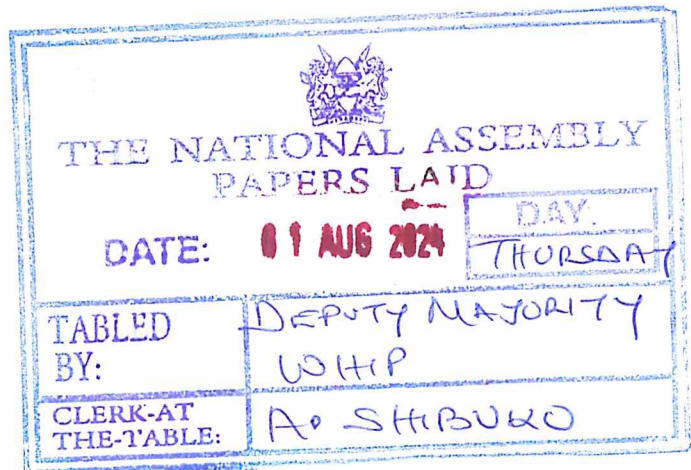 THE NATIONAL ASSEMBLY
PAPERS LAID
DATE: 01 AUG 2024
DAY.
THURSDAY
TABLED BY: DEPUTY MAJORITY WHIP
CLERK-AT THE-TABLE: A. SHIBUKO